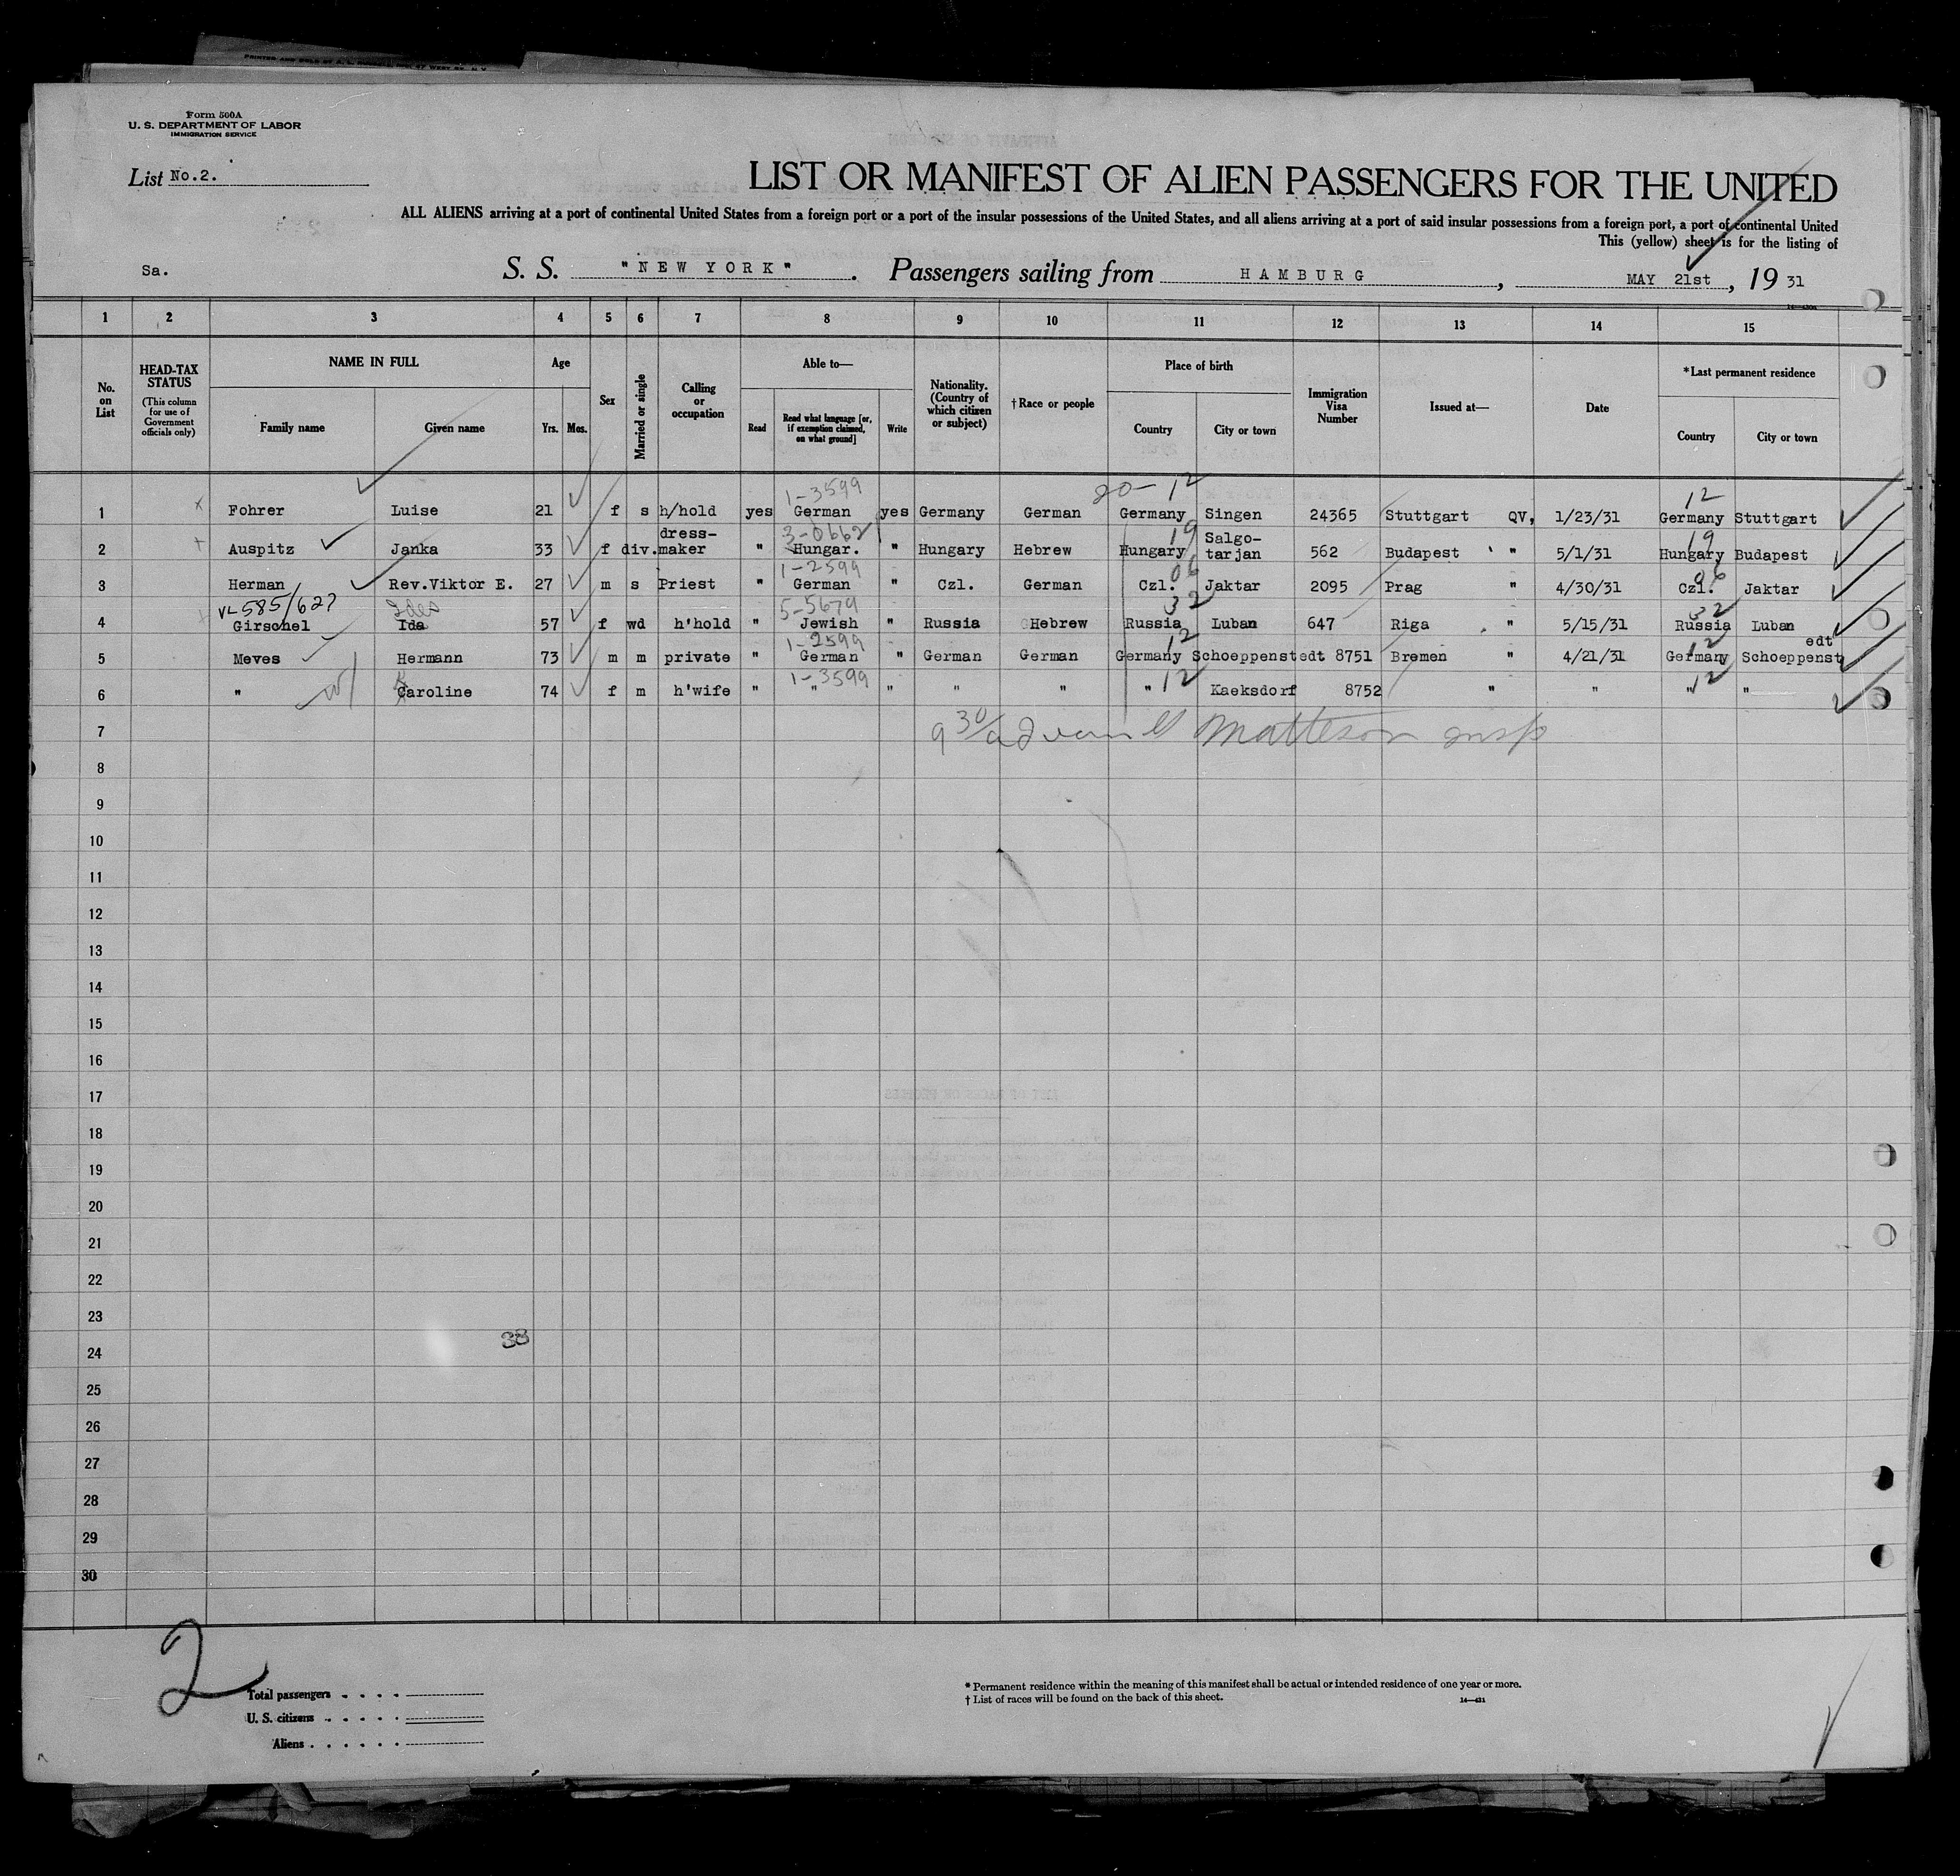 PRINTED AND SOLD BY
Form 500A
U. S. DEPARTMENT OF LABOR
IMMIGRATION SERVICE
List No.2.
LIST OR MANIFEST OF ALIEN PASSENGERS FOR THE UNITED
ALL ALIENS arriving at a port of continental United States from a foreign port or a port of the insular possessions of the United States, and all aliens arriving at a port of said insular possessions from a foreign port, a port of continental United
This (yellow) sheet is for the listing of
Sa. S. S. "NEW YORK". Passengers sailing from HAMBURG, MAY 21st, 19 31
1 2 3 4 5 6 7 8 9 10 11 12 13 14 15
No. on List
HEAD-TAX STATUS
(This column for use of Government officials only)
NAME IN FULL
Family name Given name
Age
Yrs. Mos.
Sex
Married or single
Calling or occupation
Able to—
Read
Read what language [or, if exemption claimed, on what ground]
Write
Nationality. (Country of which citizen or subject)
† Race or people
Place of birth
Country City or town
Immigration Visa Number
Issued at—
Date
*Last permanent residence
Country City or town
1-3599 20-12 12
1 Fohrer Luise 21 f s h/hold yes German yes Germany German Germany Singen 24365 Stuttgart QV, 1/23/31 Germany Stuttgart
dress- 3-0662 19 Salgo- 19
2 Auspitz Janka 33 f div. maker " Hungar. " Hungary Hebrew Hungary tarjan 562 Budapest " 5/1/31 Hungary Budapest
1-2599 06 06
3 Herman Rev.Viktor E. 27 m s Priest " German " Czl. German Czl. Jaktar 2095 Prag " 4/30/31 Czl. Jaktar
VL 585/627 Ides 5-5679 32 32
4 Girschel Ida 57 f wd h'hold " Jewish " Russia Hebrew Russia Luban 647 Riga " 5/15/31 Russia Luban
1-2599 12 12 edt
5 Meves Hermann 73 m m private " German " German German Germany Schoeppenstedt 8751 Bremen " 4/21/31 Germany Schoeppenst
K 1-3599 12 12
6 " Caroline 74 f m h'wife " " " " " " Kaeksdorf 8752 " " " "
7 9 30/a Matteson insp
8
9
10
11
12
13
14
15
16
17
18
19
20
21
22
23
33
24
25
26
27
28
29
30
2
Total passengers
U. S. citizens
Aliens
* Permanent residence within the meaning of this manifest shall be actual or intended residence of one year or more.
† List of races will be found on the back of this sheet.
14—431